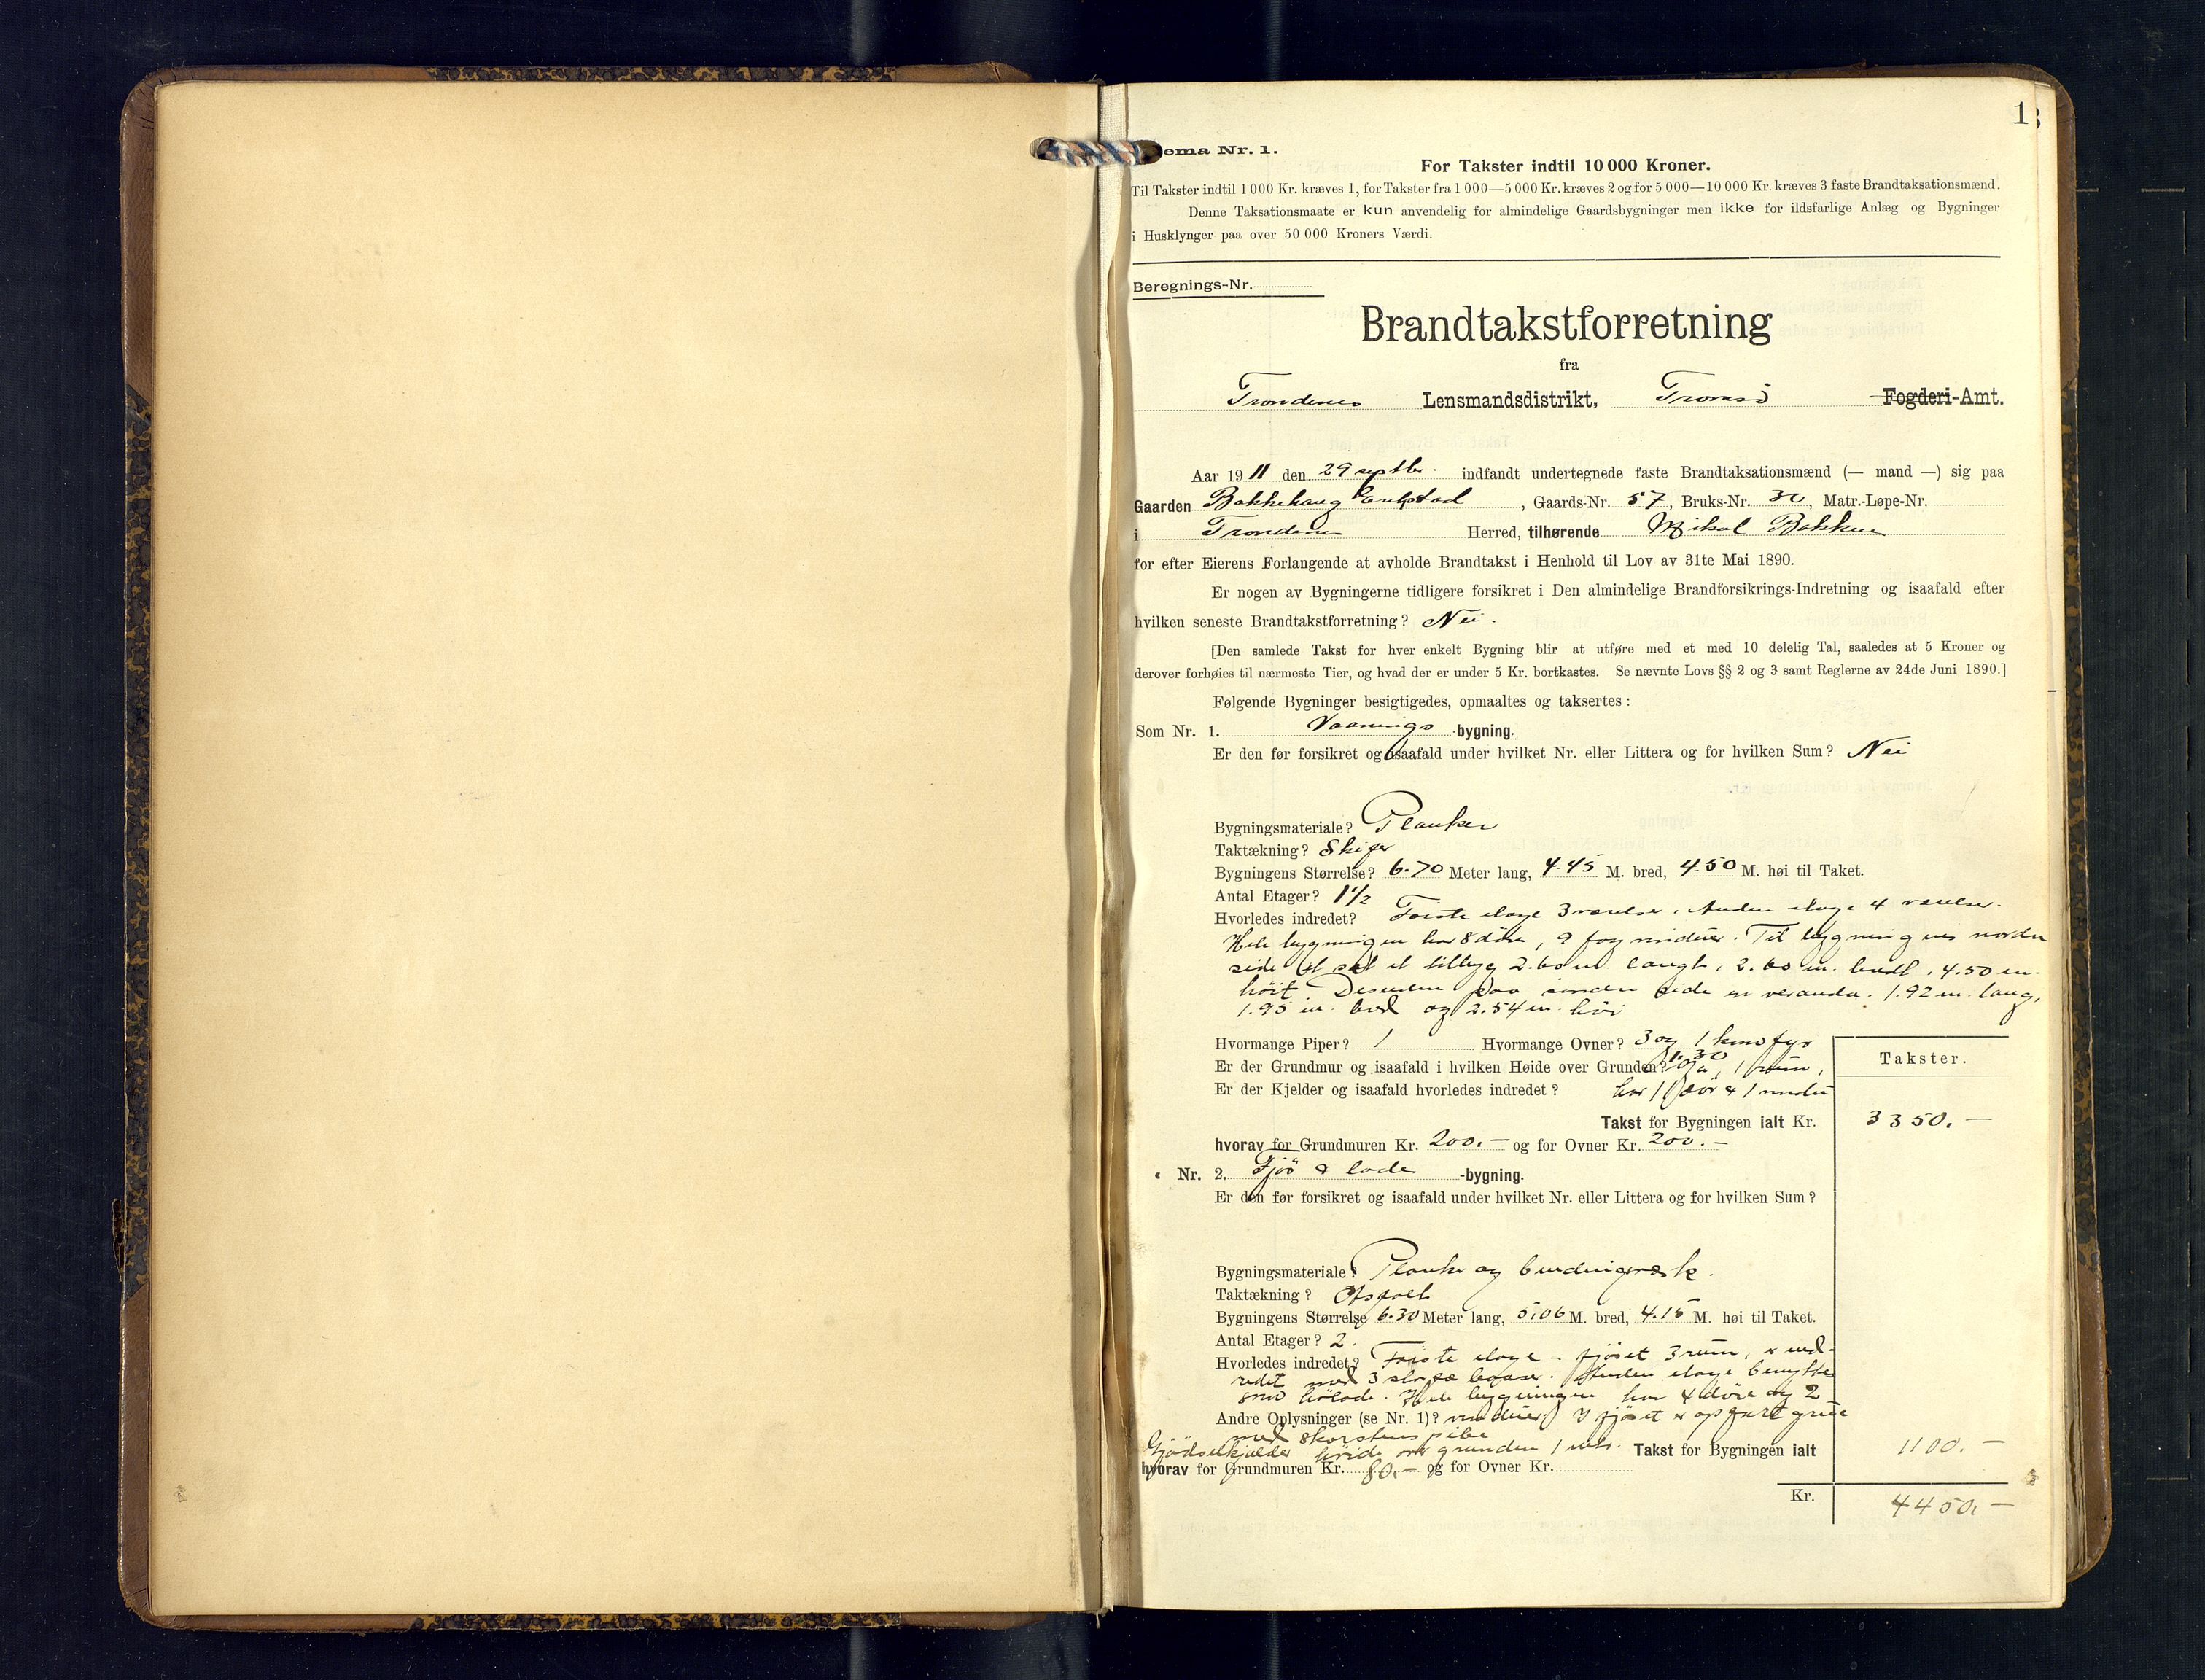 1
ema Nr. 1.
For Takster indtil 10 000 Kroner.
Til Takster indtil 1 000 Kr. kræves 1, for Takster fra 1 000—5 000 Kr. kræves 2 og for 5 000—10 000 Kr. kræves 3 faste Brandtaksationsmænd.
Denne Taksationsmaate er kun anvendelig for almindelige Gaardsbygninger men ikke for ildsfarlige Anlæg og Bygninger
i Husklynger paa over 50 000 Kroners Værdi.
Beregnings-Nr.
Brandtakstforretning
fra
Trondenes Lensmandsdistrikt, Tromsö Fogderi-Amt.
Aar 1911 den 29 septbr. indfandt undertegnede faste Brandtaksationsmænd (— mand —) sig paa
Gaarden Bakkehaug , Gaards-Nr. 57, Bruks-Nr. 30, Matr.-Løpe-Nr.
i Trondenes Herred, tilhørende Mikal Bakken
for efter Eierens Forlangende at avholde Brandtakst i Henhold til Lov av 31te Mai 1890.
Er nogen av Bygningerne tidligere forsikret i Den almindelige Brandforsikrings-Indretning og isaafald efter
hvilken seneste Brandtakstforretning? Nei.
[Den samlede Takst for hver enkelt Bygning blir at utføre med et med 10 delelig Tal, saaledes at 5 Kroner og
derover forhøies til nærmeste Tier, og hvad der er under 5 Kr. bortkastes. Se nævnte Lovs §§ 2 og 3 samt Reglerne av 24de Juni 1890.]
Følgende Bygninger besigtigedes, opmaaltes og taksertes:
Som Nr. 1. Vaanings-bygning.
Er den før forsikret og isaafald under hvilket Nr. eller Littera og for hvilken Sum? Nei
Bygningsmateriale? Planker
Taktækning? Skifer
Bygningens Størrelse? 6.70 Meter lang, 4.45 M. bred, 4.50 M. høi til Taket.
Antal Etager? 1 1/2
Hvorledes indredet? Förste etage 3 værelser. Anden etage 4 værelser.
Hele bygningen har 8 döre, 9 fag vinduer. Til bygningens nordre
side et tilbyg 2.60 m. langt, 2.60 m. bredt, 4.50 m.
höit. Desuden paa söndre side en veranda. 1.92 m. lang,
1.95 m. bred og 2.54 m. höi
Hvormange Piper? 1 Hvormange Ovner? 3 og 1 komfyr
Er der Grundmur og isaafald i hvilken Høide over Grunden? 1.30
Er der Kjelder og isaafald hvorledes indredet? Ja, 1 rum,
har 1 dör & 1 vindu
Takster.
Takst for Bygningen ialt Kr. 3350.—
hvorav for Grundmuren Kr. 200.— og for Ovner Kr. 200.—
« Nr. 2. Fjös & lade -bygning.
Er den før forsikret og isaafald under hvilket Nr. eller Littera og for hvilken Sum?
Bygningsmateriale? Planke og bindingsværk.
Taktækning?
Bygningens Størrelse 6.30 Meter lang, 5.06 M. bred, 4.15 M. høi til Taket.
Antal Etager? 2.
Hvorledes indredet? Förste etage - fjöset 3 rum, er ind-
redet med 3 baaser. Anden etage benyttes
som hölade. Hele bygningen har 4 döre og 2
Andre Oplysninger (se Nr. 1)? vinduer. I fjöset er opfört grue
med skorstenspibe
Gjödselkjelder höide over grunden 1 mtr. Takst for Bygningen ialt 1100.—
hvorav for Grundmuren Kr. 80.— og for Ovner Kr.
Kr. 4450.—